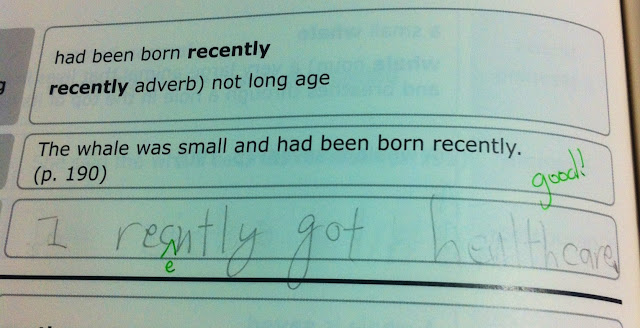 had been born recently
recently adverb) not long age
The whale was small and had been born recently.
(p. 190)
good!
I recntly got healthcare
e